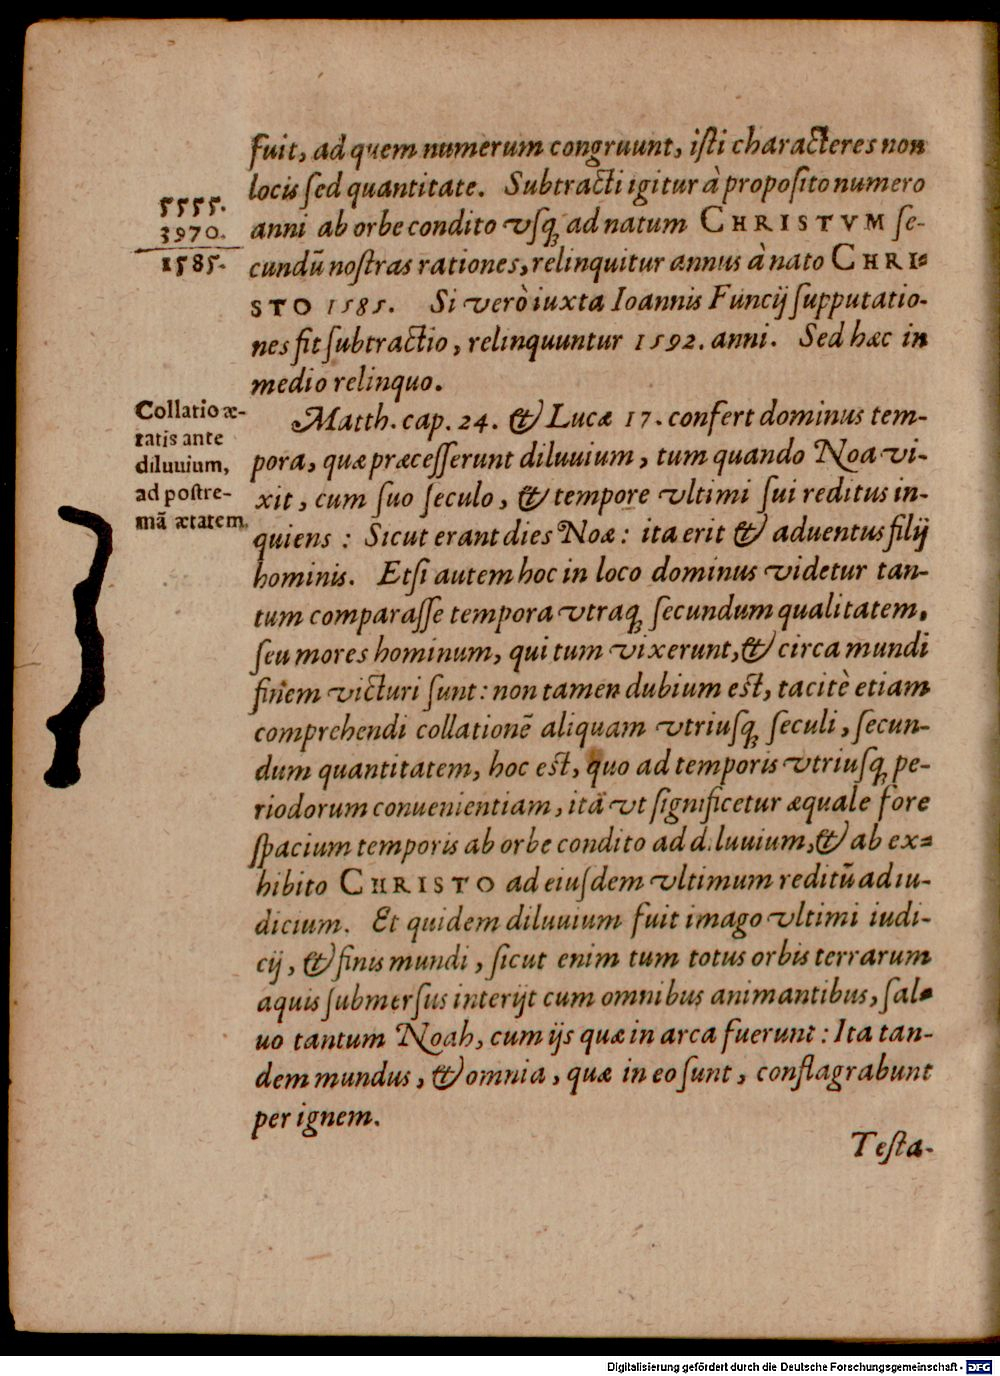 fuit, ad quem numerum congruunt, iſti characteres non
locis ſed quantitate. Subtracti igitur à propoſito numero
5555.
3970.
1585.
anni ab orbe condito vſq́ꝫ ad natum CHRISTVM ſe-
cundū noſtras rationes, relinquitur annus à nato CHRI-
STO 1585. Si verò iuxta Ioannis Funcij ſupputatio-
nes fit ſubtractio, relinquuntur 1592. anni. Sed hæc in
medio relinquo.
Collatio æ-
tatis ante
diluuium,
ad poſtre-
mã ætatem.
Matth. cap. 24. & Lucæ 17. confert dominus tem-
pora, quæ præceſſerunt diluuium, tum quando Noa vi-
xit, cum ſuo ſeculo, & tempore vltimi ſui reditus in-
quiens: Sicut erant dies Noæ: ita erit & aduentus filij
hominis. Etſi autem hoc in loco dominus videtur tan-
tum comparaſſe tempora vtraqꝫ ſecundum qualitatem,
ſeu mores hominum, qui tum vixerunt, & circa mundi
finem victuri ſunt: non tamen dubium eſt, tacitè etiam
comprehendi collationē aliquam vtriuſqꝫ ſeculi, ſecun-
dum quantitatem, hoc eſt, quo ad temporis vtriuſqꝫ pe-
riodorum conuenientiam, ita vt ſignificetur æquale fore
ſpacium temporis ab orbe condito ad diluuium, & ab ex-
hibito CHRISTO ad eiuſdem vltimum reditū ad iu-
dicium. Et quidem diluuium fuit imago vltimi iudi-
cij, & finis mundi, ſicut enim tum totus orbis terrarum
aquis ſubmerſus interijt cum omnibus animantibus, ſal-
uo tantum Noah, cum ijs quæ in arca fuerunt: Ita tan-
dem mundus, & omnia, quæ in eo ſunt, conflagrabunt
per ignem.
Teſta-
Digitalisierung gefördert durch die Deutsche Forschungsgemeinschaft - DFG